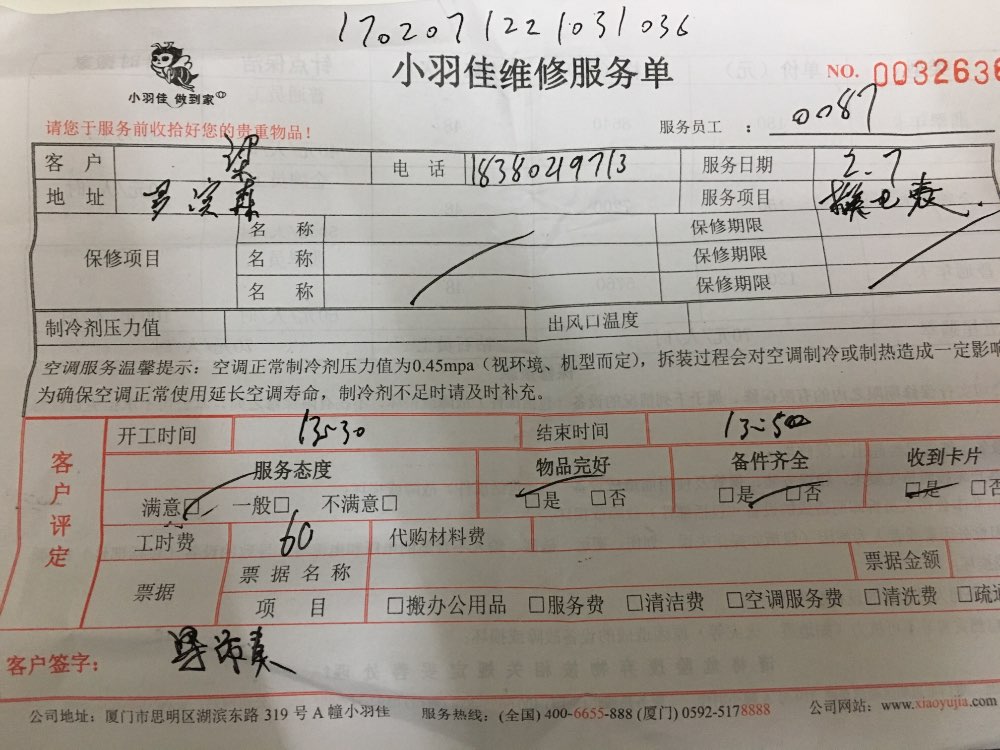 1702071221031036
小羽佳 做到家
小羽佳维修服务单
NO. 0032636
请您于服务前收拾好您的贵重物品！
服务员工 ： 0087
客 户 梁 电 话 18380219713 服务日期 2.7
地 址 服务项目 换电表.
保修项目 名 称 保修期限
名 称 保修期限
名 称 保修期限
制冷剂压力值 出风口温度
空调服务温馨提示：空调正常制冷剂压力值为0.45mpa（视环境、机型而定），拆装过程会对空调制冷或制热造成一定影响
为确保空调正常使用延长空调寿命，制冷剂不足时请及时补充。
客户评定
开工时间 13~30 结束时间 13~50
服务态度 物品完好 备件齐全 收到卡片
满意□ 一般□ 不满意□ □是 □否 □是 □否 □是 □否
工时费 60 代购材料费
票据 票据名称 票据金额
项 目 □搬办公用品 □服务费 □清洁费 □空调服务费 □清洗费 □疏通
客户签字：
公司地址：厦门市思明区湖滨东路 319 号 A 幢小羽佳 服务热线：(全国) 400-6655-888 (厦门) 0592-5178888 公司网站：www.xiaoyujia.com